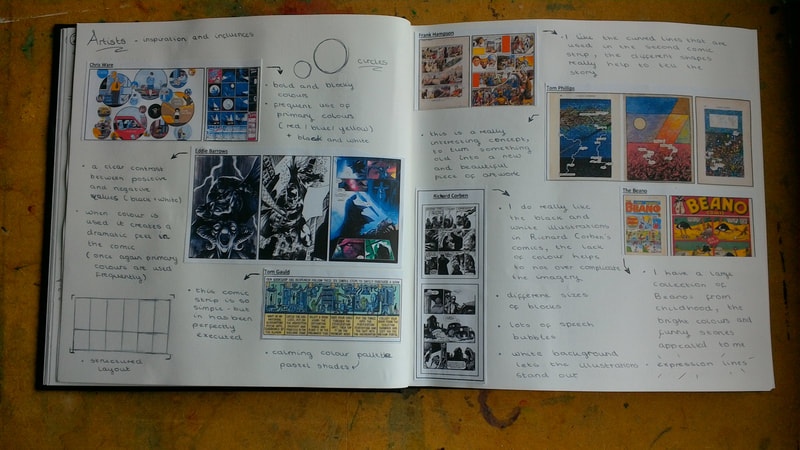 Artists - inspiration and influences
Chris Ware
circles
• bold and blocky
colours
• frequent use of
primary colours
(red / blue / yellow)
+ black and white
Eddie Barrows
• a clear contrast
between positive
and negative
values (black + white)
• when colour is
used it creates a
dramatic feel in
the comic
(once again primary
colours are used
frequently)
Tom Gauld
• this comic
strip is so
simple - but
it has been
perfectly
executed
• structured
layout
• calming colour palette
pastel shades
Frank Hampson
• I like the curved lines that are
used in the second comic
strip, the different shapes
really help to tell the
story
Tom Phillips
• this is a really
interesting concept,
to turn something
old into a new
and beautiful
piece of artwork
Richard Corben
• I do really like
the black and
white illustrations
in Richard Corben's
comics, the lack
of colour helps
to not over complicate
the imagery.
• different sizes
of blocks
• lots of speech
bubbles
• white background
lets the illustrations
stand out
The Beano
BEANO
BEANO
• I have a large
collection of
Beanos from
childhood, the
bright colours and
funny stories
appealed to me
• expression lines